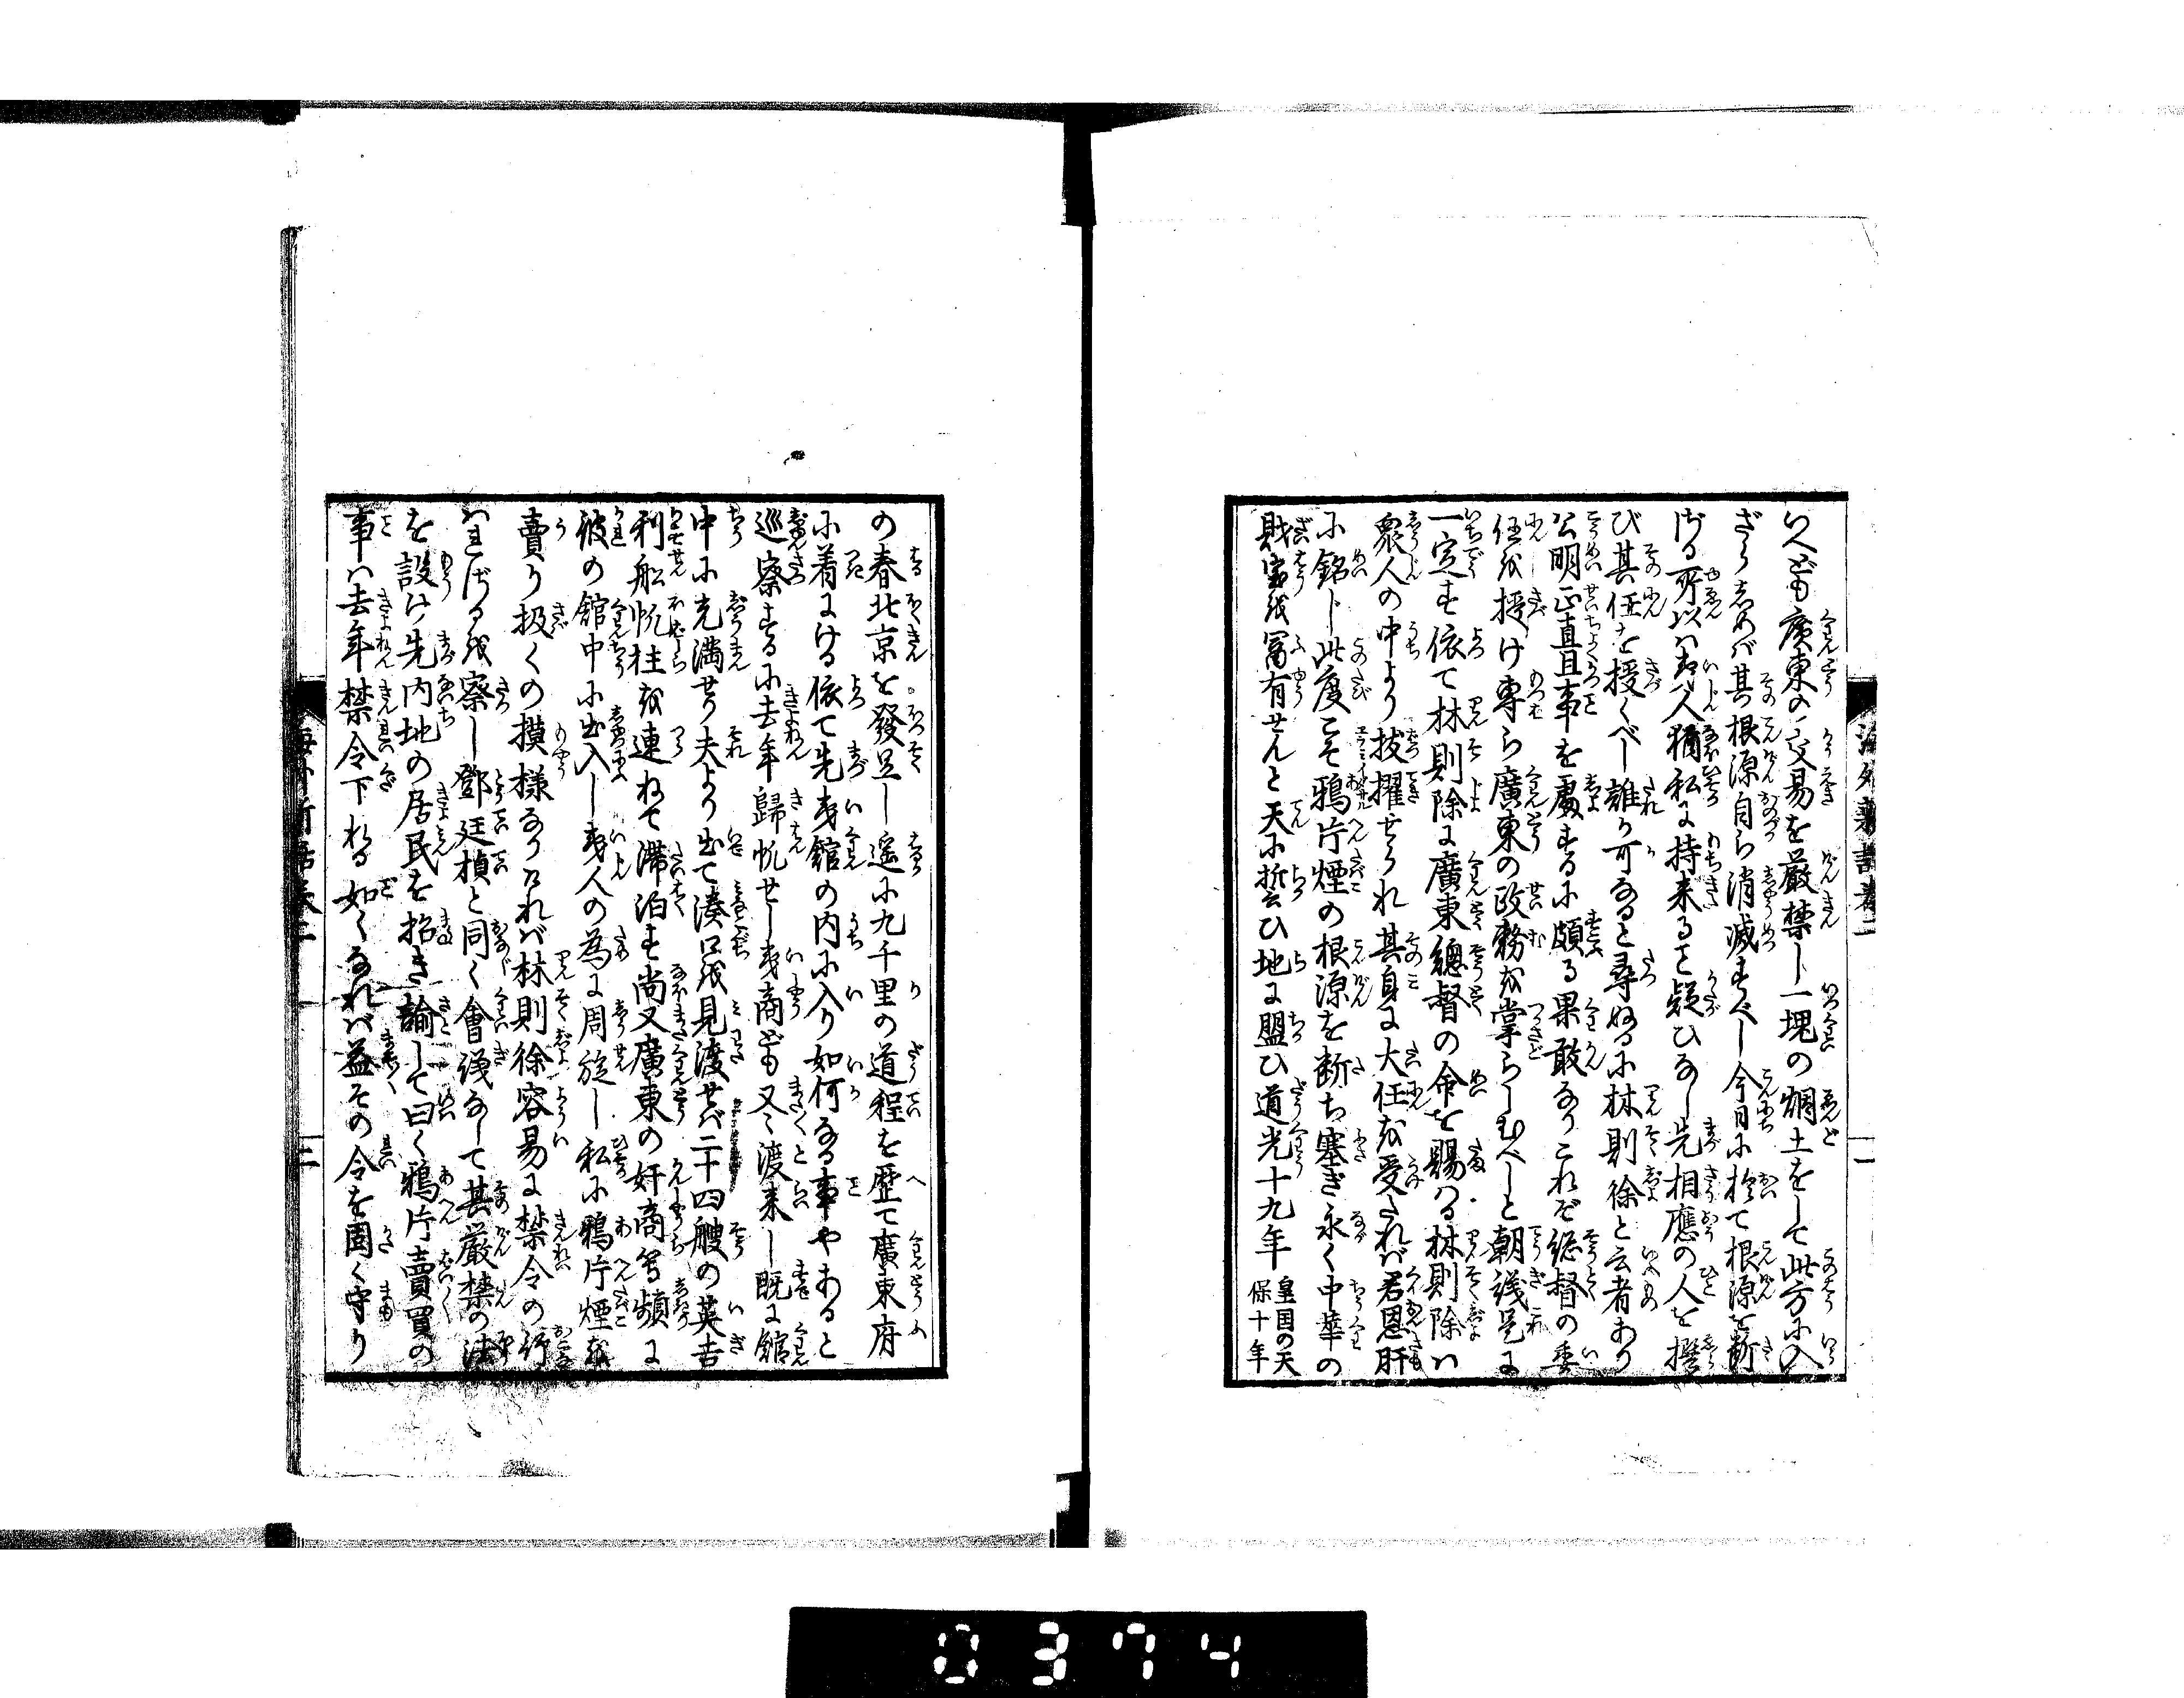 いへども廣東の交易を嚴禁し一塊の烟土をして此方に入
ざらしめば其根源自ら消滅すべし今日に於て根源を断
ざる所以は夷人猶私に持来ると疑ひなし先相應の人を撰
び其任を授くべし誰か可なると尋ぬるに林則徐と云者あり
公明正直且事を處するに頗る果敢なりこれぞ総督の委
任を授け専ら廣東の政務を掌らしむべしと朝議是に
一定す依て林則除に廣東總督の命を賜はる林則除は
衆人の中より抜擢せられ其身に大任を受たれば君恩肝
に銘じ此度こそ鴉片煙の根源を断ち塞ぎ永く中華の
財宝を冨有せんと天に誓ひ地に盟ひ道光十九年 皇国の天保十年
の春北京を發足し遥に九千里の道程を歴て廣東府
に着にける依て先夷館の内に入り如何なる事やあると
巡察するに去年歸帆せし夷商ども又〻渡来し既に館
中に充満せり夫より出て湊口を見渡せば二十四艘の英吉
利船帆柱を連ねて滞泊す尚又廣東の奸商等頻に
彼の館中に出入し夷人の為に周旋し私に鴉片煙を
賣り扱くの摸様なりければ林則徐容易に禁令の行
はれざるを察し鄧廷楨と同く會議なして其厳禁の法
を設け先内地の居民を招き諭して曰く鴉片賣買の
事は去年禁令下れる如くなれば益その令を固く守り
海外新話巻二
二
0374